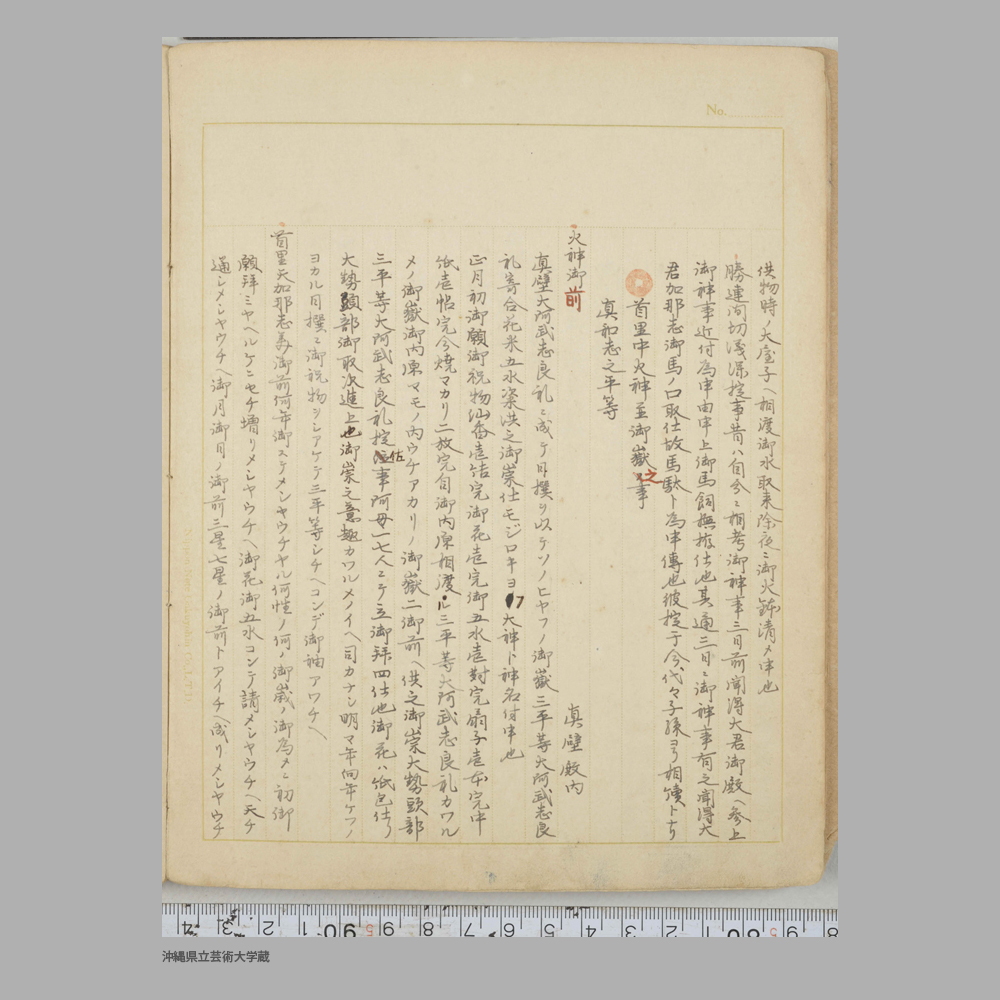 No.
供物時ノ大屋子ヘ相渡御水取来除夜ニ御火鉢清メ申也
勝連間切浅深掟事昔ハ自分ニ相考御神事三日前聞得大君御殿ヘ参上
御神事近付為申由申上御馬飼撫抜仕也其通三日ニ御神事有之聞得大
君加那志御馬ノ口取仕故馬駄ト為申傳也彼掟于今代々子孫ヨリ相續ト
首里中火神並御嶽之事
真和志之平等
真壁殿内
火神御前
真壁大阿武志良礼ニ成ケ日撰ヲ以テソノヒヤフノ御嶽三平等大阿武志良
礼寄合花米五水備之御崇仕モジロキヨ 大神ト神名付申也
正月初御願御祝物仙香壱結完御花壱完御五水壱對完扇子壱本完中
紙壱帖完今焼マカリ二放完自御内原相渡ル三平等大阿武志良礼カワル
メノ御嶽御内原マモノ内ウチアカリノ御嶽二御前ヘ供之御崇大勢頭部
三平等大阿武志良礼掟佐事阿母一七人ニテ立御拜四仕也御花ハ紙包仕ラ
大勢頭部御取次進上也御崇之意趣カワルメノイヘ司カナシ明マ年向年ケフノ
ヨカル日撰ニ御祝物ヲシアケテ三平等シチヘコンデ御袖アワチヘ
首里天加那志美御前何年御スケメシヤウチヤル何性ノ何ノ御歳ノ御為メニ初御
願拜ミヤヘルケニセチ増リメシヤウチヘ御花御五水コンテ請メシヤウチヘ天チ
通シメシヤウチヘ御月御日ノ御前三星七星ノ御前トアイチヘ成リメシヤウチ
沖縄県立芸術大学蔵